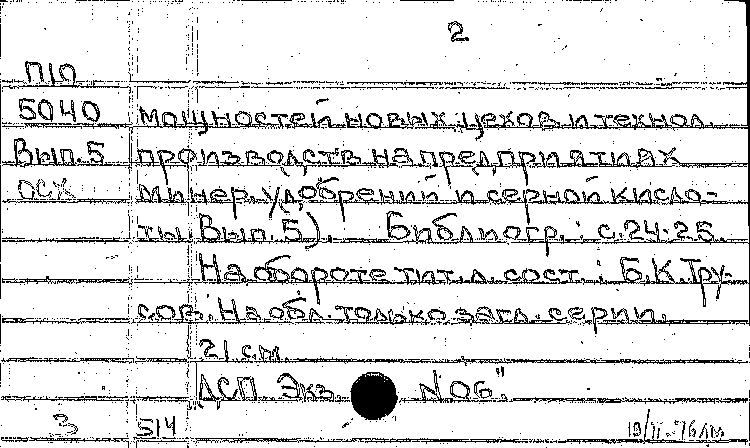 2
П10
5040 мощностей новых цехов и технол.
Вып.5 производств на предприятиях
осх минер. удобрений и серной кисло-
ты Вып. 5). Библиогр.: с. 24-25.
На обороте тит. л. сост.: Б.К. Тру-
сов. На обл. только загл. серии.
21 см.
ДСП Экз № 06"
3 514 19/II-76